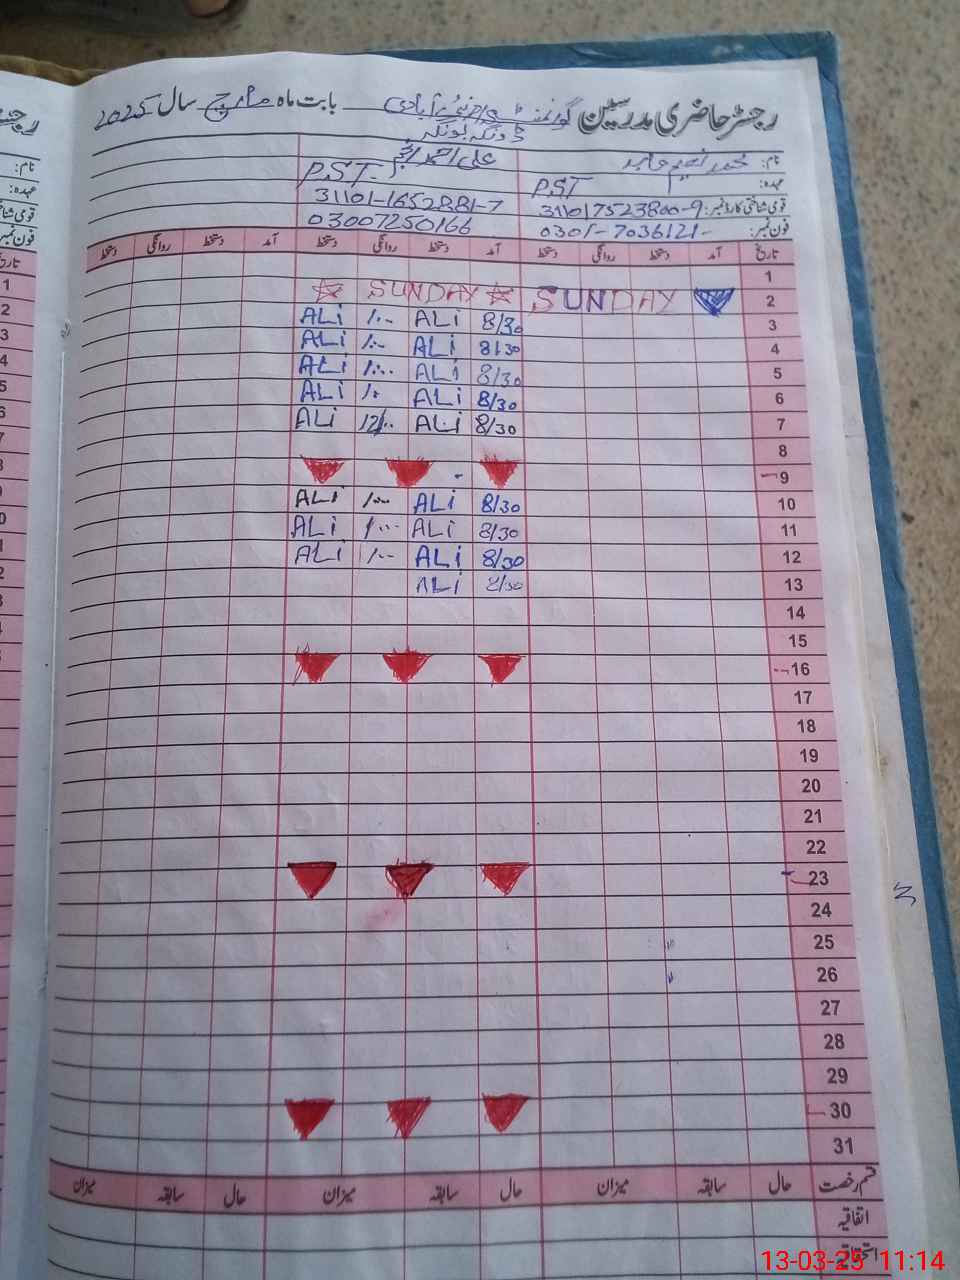 رجسٹر حاضری مدرسین گورنمنٹ بابت ماہ مارچ سال 2025
نام: محمد نعیم عابد علی احمد
عہدہ: PST P.ST-
قومی شناختی کارڈ نمبر: 311017523800-9 31101-1652881-7
فون نمبر: 0301-7036121- 03007250166
تاریخ آمد دستخط روانگی دستخط آمد دستخط روانگی دستخط آمد دستخط روانگی دستخط
1
2 SUNDAY SUNDAY
3 8/30 ALi ۱/۰۰ ALi
4 8/30 ALi ۱/۰۰ ALi
5 8/30 ALi ۱/۰۰ ALi
6 8/30 ALi ۱/۰ ALi
7 8/30 ALi 12/۰۰ ALi
8
9
10 8/30 ALi ۱/۰۰ ALi
11 8/30 ALi ۱/۰۰ ALi
12 8/30 ALi ۱/۰۰ ALi
13 8/30 ALi
14
15
16
17
18
19
20
21
22
23
24
25
26
27
28
29
30
31
قسم رخصت حال سابقہ میزان حال سابقہ میزان حال سابقہ میزان
اتفاقیہ
استحقاقیہ
13-03-25 11:14